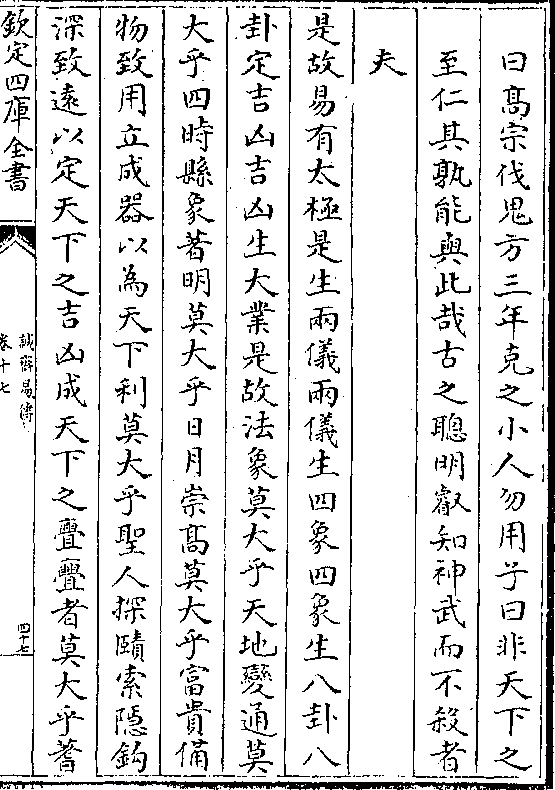 曰髙宗伐鬼方三年克之小人勿用予曰非天下之
至仁其孰能與此哉古之聰明叡知神武而不殺者
夫
是故易有太極是生兩儀兩儀生四象四象生八卦八
卦定吉凶吉凶生大業是故法象莫大乎天地變通莫
大乎四時縣象著明莫大乎日月崇髙莫大乎富貴備
物致用立成器以為天下利莫大乎聖人探賾索隱鈎
深致逺以定天下之吉凶成天下之亹亹者莫大乎蓍
欽定四庫全書
誠齋易傳
卷十七
四十七